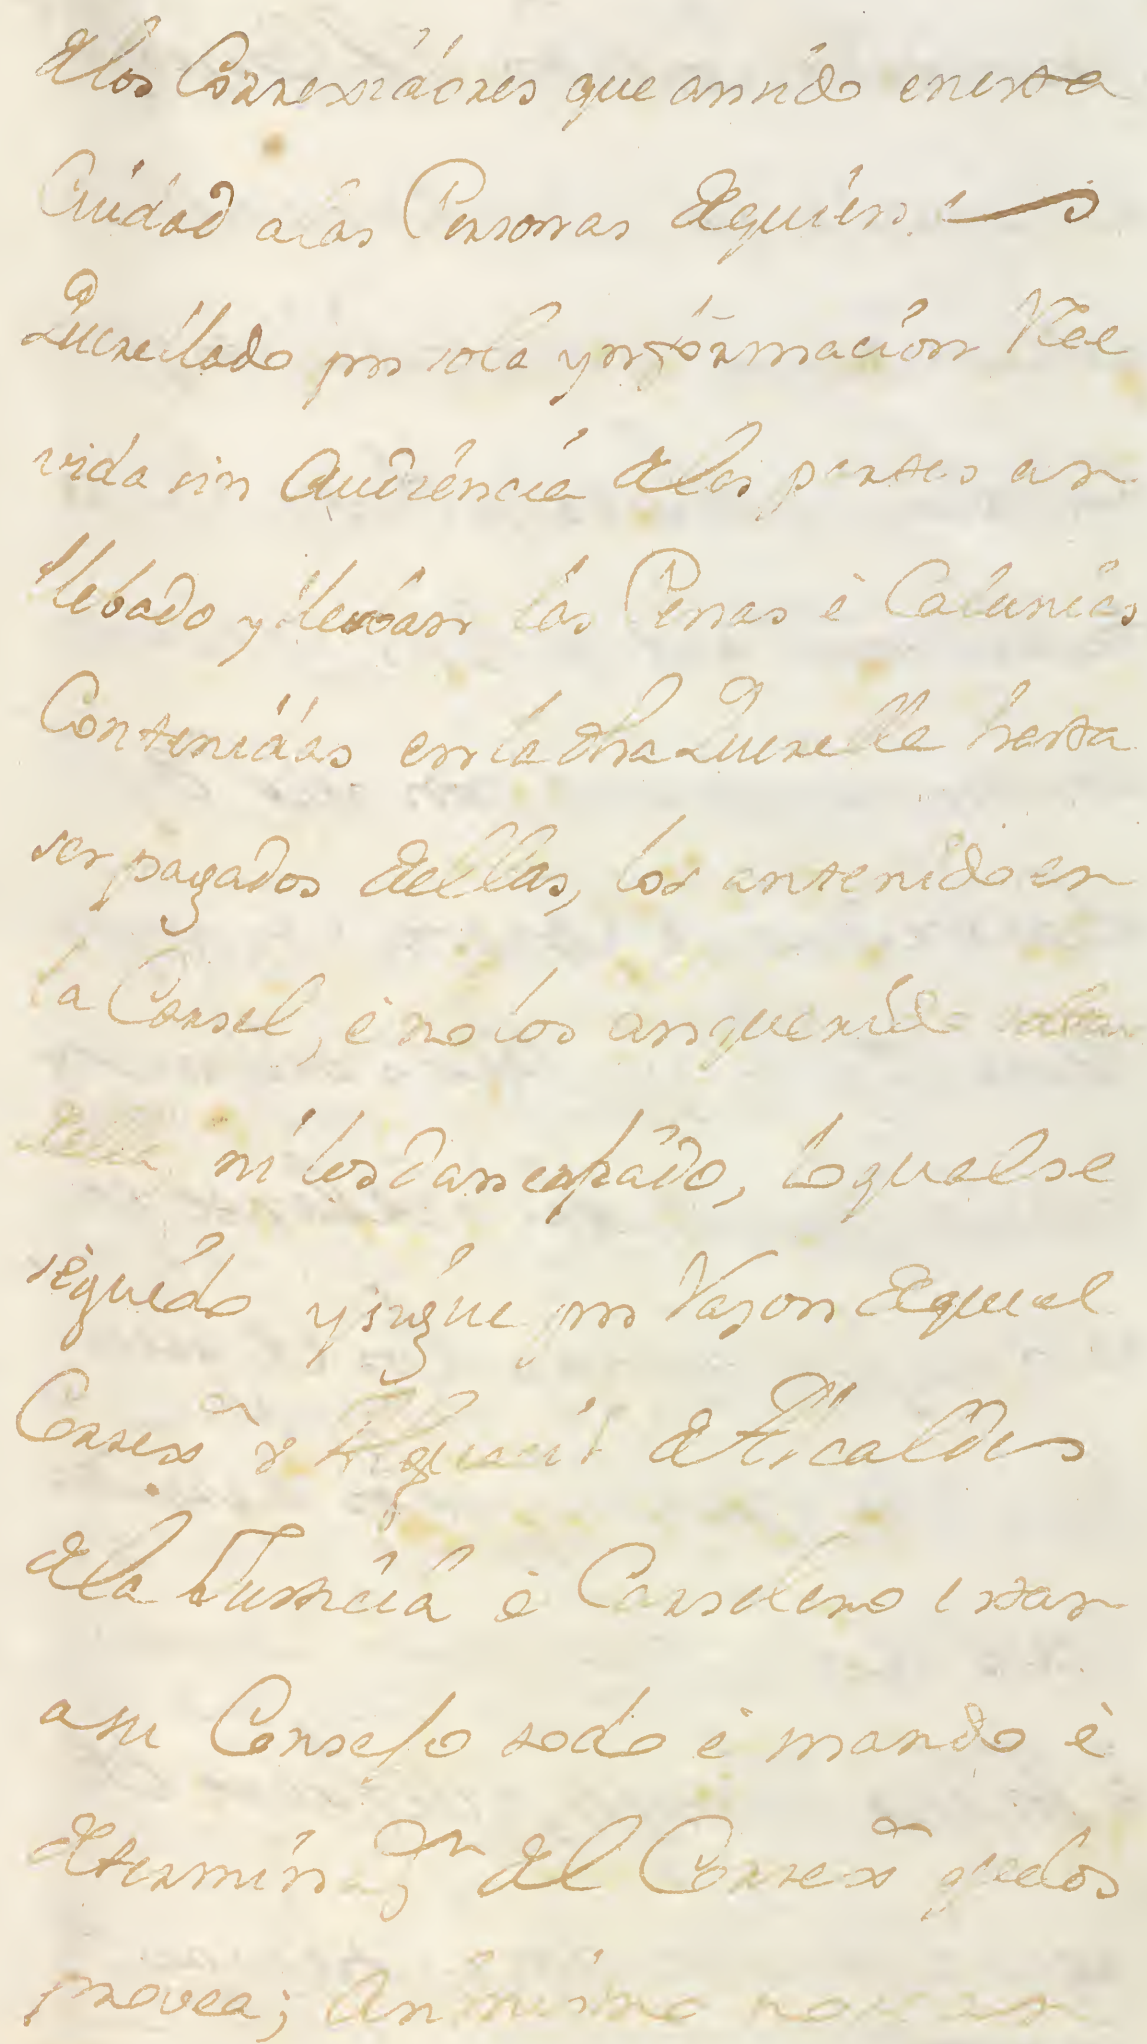 delos Correxidores que an sido en esta
Ciudad alas Personas de quien se
Querellado por sola ynformacion Rec
vida sin Audiencia delas partes an
llebado y lleban las Penas è Calunias
Contenidas en la dha Querella hasta
ser pagados dellas, los an tenido en
la Carsel, è no los an querido soltar
della ni los dan en fiado, lo qual se
à seguido y sigue por Razon de que el
Correxor y Alguacil de Alcaldes
dela Justicia è Carselero estan
a su Consejo todo è mando è
determinon del Correxor que los
provea; Assimismo